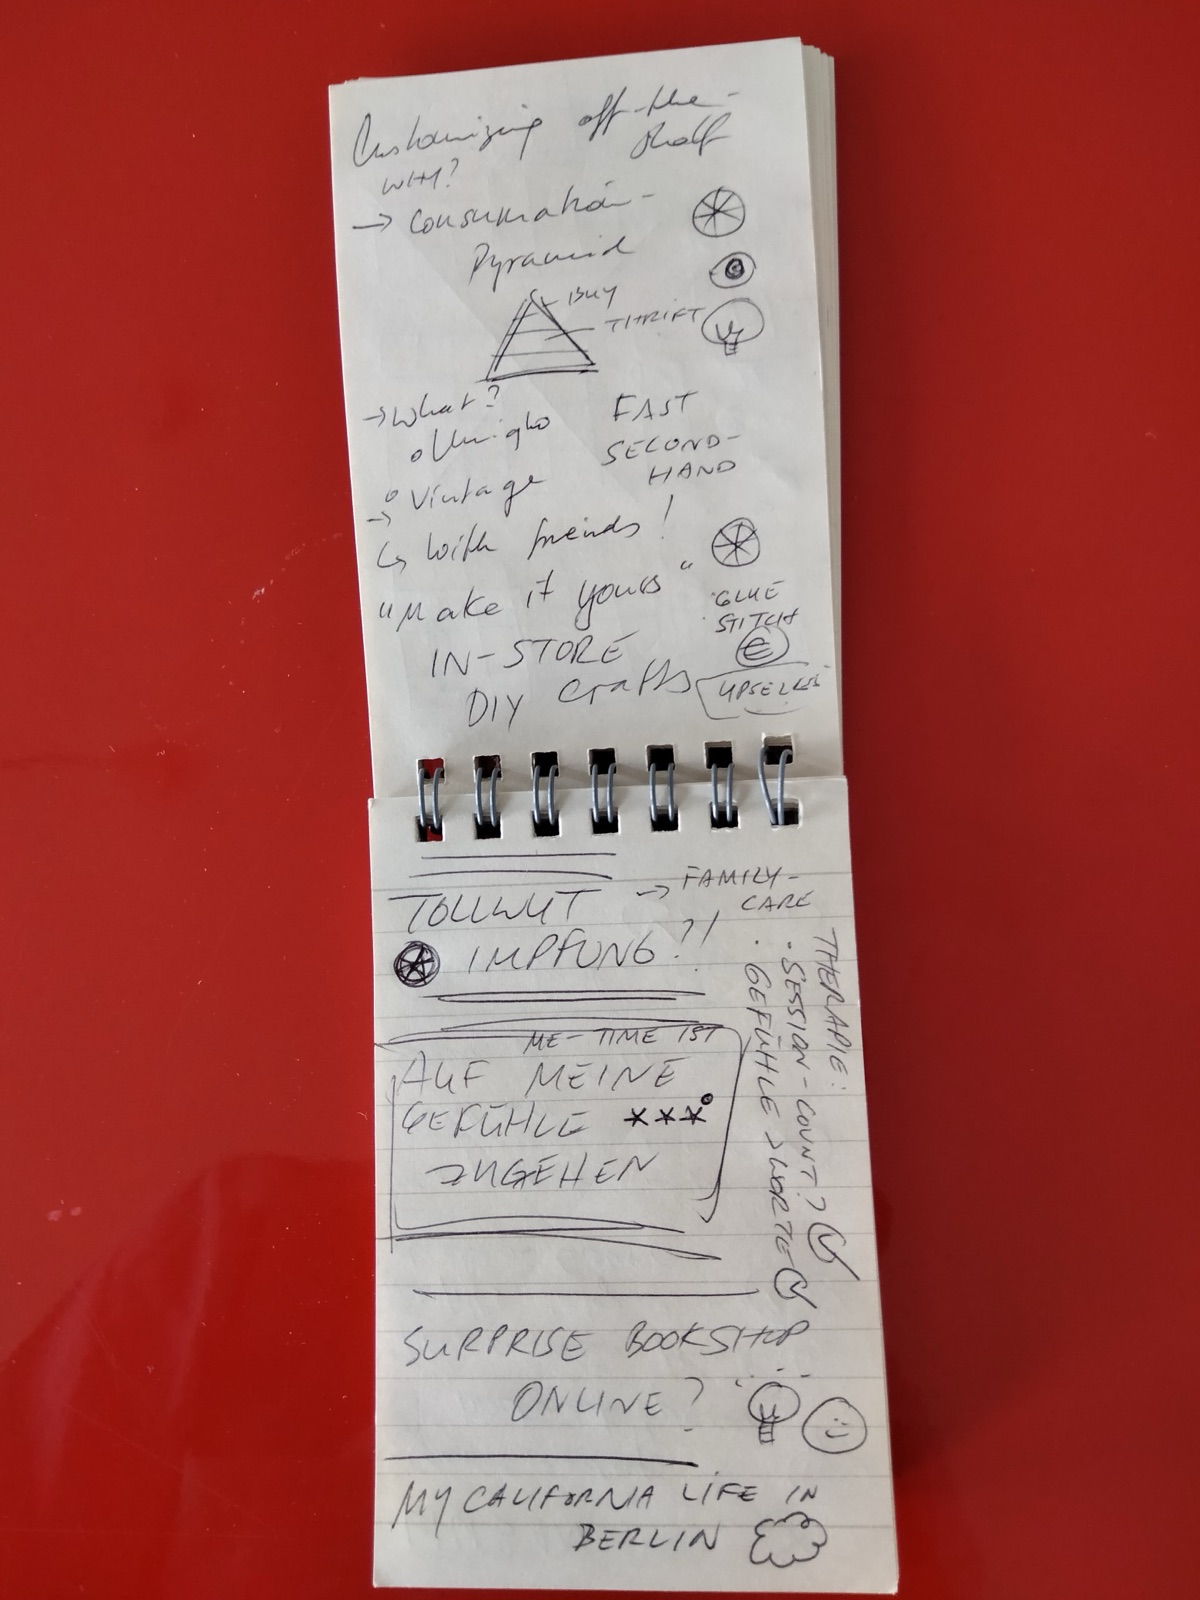 Customizing off-the-
shelf
WHY?
→ Consumation-
Pyramid
BUY
THRIFT
→ What?
FAST
SECOND-
HAND
° Vintage
→
↳ With friends!
"Make it yours"
GLUE
STITCH
€
IN-STORE
DIY Crafts
UPSELLS
TOLLWUT → FAMILY-
CARE
IMPFUNG?!
THERAPIE:
· SESSION-COUNT?
· GEFÜHLE > WORTE
ME-TIME IST
AUF MEINE
GEFÜHLE ***
ZUGEHEN
SURPRISE BOOKSHOP
ONLINE?
MY CALIFORNIA LIFE IN
BERLIN